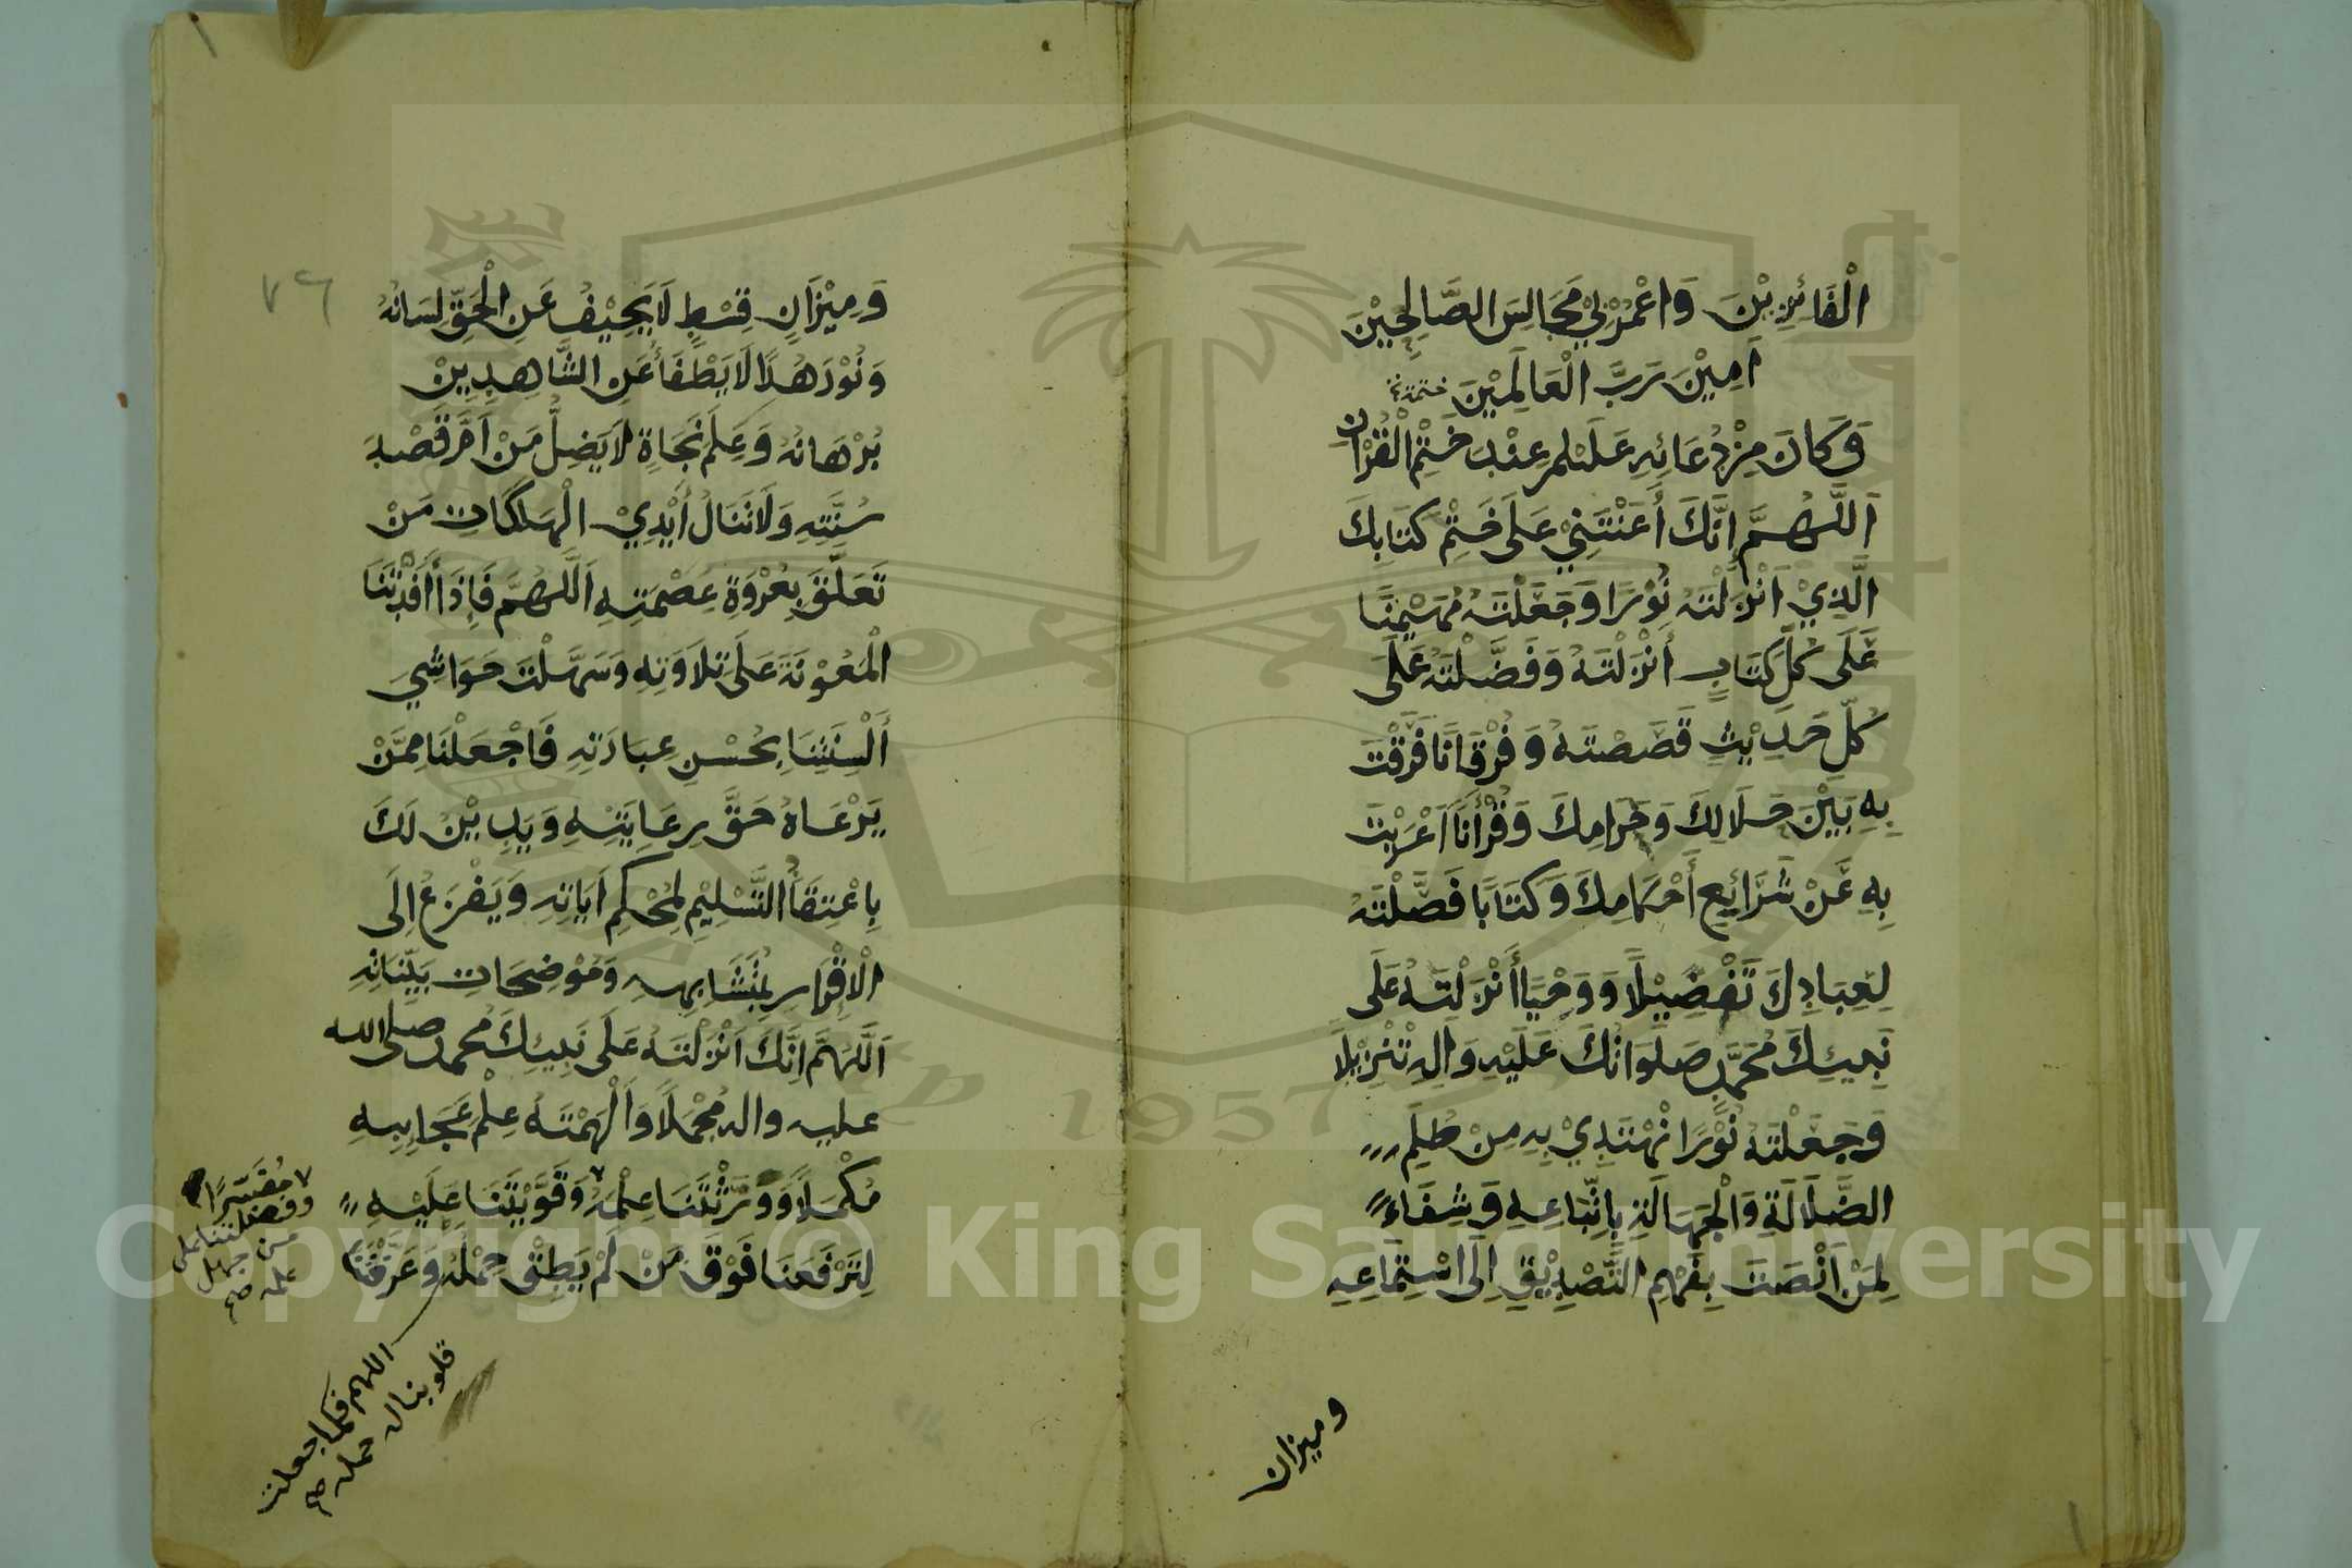 الْفَائِزِيْنَ وَاعْمُرْ بِيْ مَجَالِسَ الصَّالِحِيْنَ
اٰمِيْنَ رَبَّ الْعَالَمِيْنَ
وَكَانَ مِنْ دُعَائِهِ عَلَيْلم عِنْدَ خَتْمِ الْقُرْاٰنِ
اَللّٰهُمَّ إِنَّكَ أَعَنْتَنِيْ عَلَى خَتْمِ كِتَابِكَ
الَّذِيْ اَنْزَلْتَهُ نُوْرًا وَجَعَلْتَهُ مُهَيْمِنًا
عَلَى كُلِّ كِتَابٍ أَنْزَلْتَهُ وَفَضَّلْتَهُ عَلَى
كُلِّ حَدِيْثٍ قَصَصْتَهُ وَفُرْقَانًا فَرَقْتَ
بِهِ بَيْنَ حَلَالِكَ وَحَرَامِكَ وَقُرْاٰنًا اَعْرَبْتَ
بِهِ عَنْ شَرَائِعِ أَحْكَامِكَ وَكِتَابًا فَصَّلْتَهُ
لِعِبَادِكَ تَفْصِيْلًا وَوَحْيًا أَنْزَلْتَهُ عَلَى
نَبِيِّكَ مُحَمَّدٍ صَلَوَاتُكَ عَلَيْهِ وَاٰلِهِ تَنْزِيْلًا
وَجَعَلْتَهُ نُوْرًا نَهْتَدِيْ بِهِ مِنْ ظُلَمِ
الضَّلَالَةِ وَالْجَهَالَةِ بِاتِّبَاعِهِ وَشِفَاءً
لِمَنْ أَنْصَتَ بِفَهْمِ التَّصْدِيْقِ اِلَى اسْتِمَاعِهِ
وميزان
٧٦
وَمِيْزَانِ قِسْطٍ لَا يَحِيْفُ عَنِ الْحَقِّ لِسَانُهُ
وَنُوْرَ هُدًا لَا يَطْفَأُ عَنِ الشَّاهِدِيْنَ
بُرْهَانُهُ وَعَلَمَ نَجَاةٍ لَا يَضِلُّ مَنْ اَمَّ قَصْدَ
سُنَّتِهِ وَلَا تَنَالُ أَيْدِيْ الْهَلَكَاتِ مَنْ
تَعَلَّقَ بِعُرْوَةِ عِصْمَتِهِ اَللّٰهُمَّ فَإِذَا أَفَدْتَنَا
الْمَعُوْنَةَ عَلَى تِلَاوَتِهِ وَسَهَّلْتَ حَوَاشِيَ
أَلْسِنَتِنَا بِحُسْنِ عِبَارَتِهِ فَاجْعَلْنَا مِمَّنْ
يَرْعَاهُ حَقَّ رِعَايَتِهِ وَيَدِيْنُ لَكَ
بِاعْتِقَا التَّسْلِيْمِ لِمُحْكَمِ اٰيَاتِهِ وَيَفْزَعُ اِلَى
الْاِقْرَارِ بِمُتَشَابِهِهِ وَمُوْضِحَاتِ بَيِّنَاتِهِ
اَللّٰهُمَّ اِنَّكَ اَنْزَلْتَهُ عَلَى نَبِيِّكَ مُحمد صلى الله
عليه واله مُجْمَلًا وَاَلْهَمْتَهُ عِلْمَ عَجَايِبِهِ
مُكْمَلًا وَوَرَّثْتَنَا عِلْمَهُ وَقَوَّيْتَنَا عَلَيْهِ
لِتَرْفَعَنَا فَوْقَ مَنْ لَمْ يَطِقْ حِمْلَهُ وَعَرَّفْتَنَا
مُفَسَّرًا
وفضلتنا على
من جهل
علمه صح
اللهم فكما جعلت
قلوبنا له حمله صح